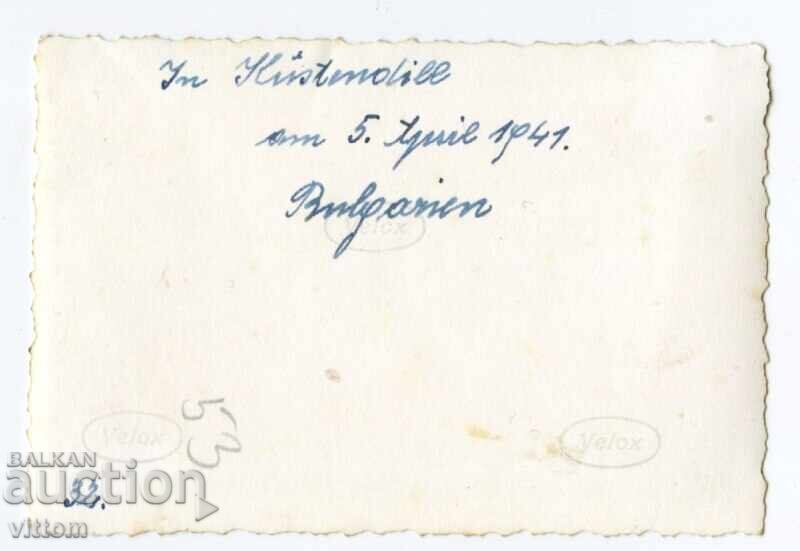 In Küstendill
am 5. April 1941.
Bulgarien
Velox
53
Velox
Velox
BALKAN
auction
32.
vittom